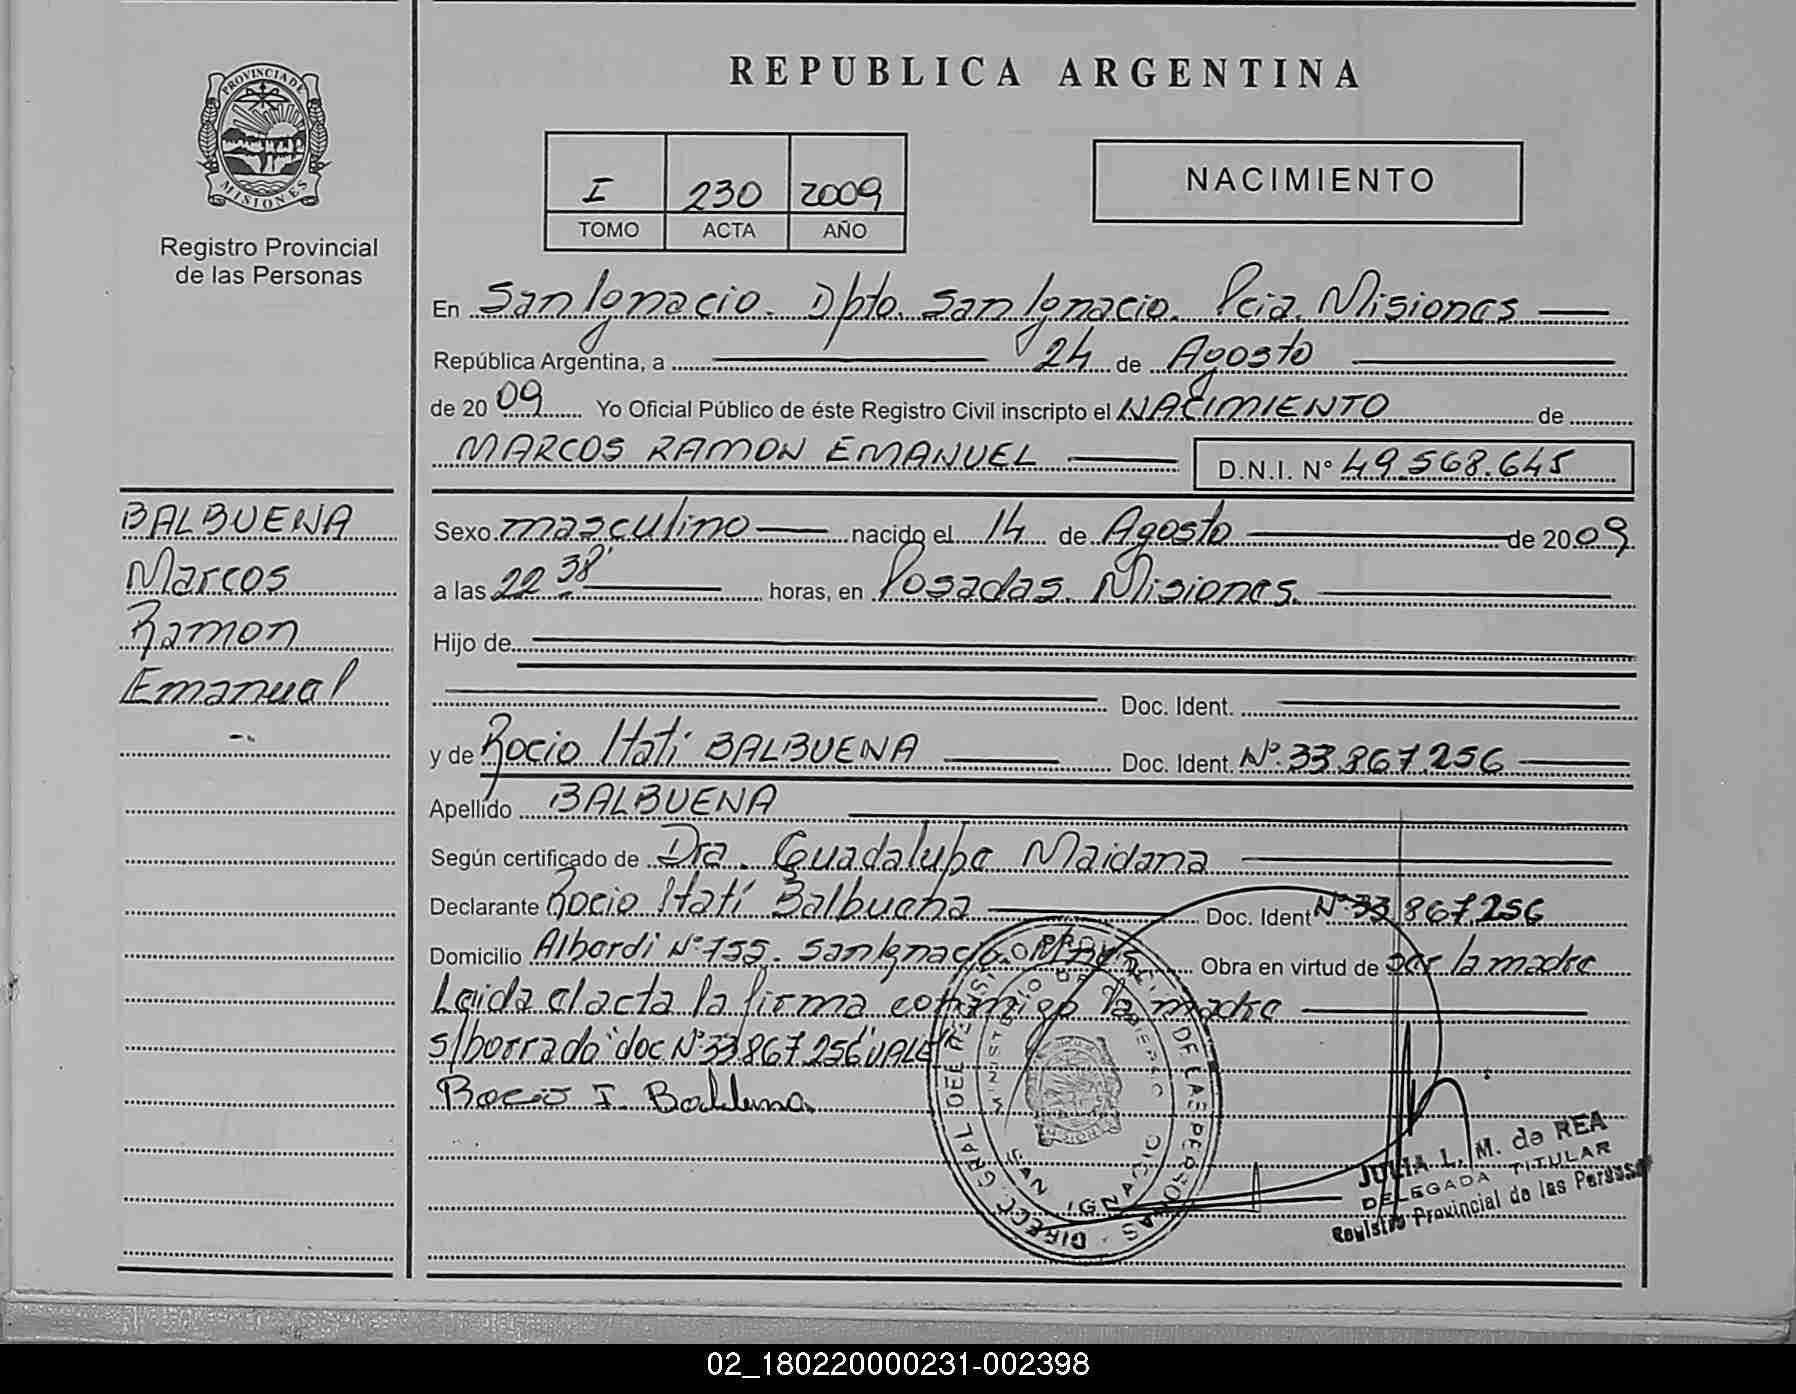 REPUBLICA ARGENTINA
PROVINCIA DE
MISIONES
Registro Provincial
de las Personas
I 230 2009
TOMO ACTA AÑO
NACIMIENTO
En San Ignacio. Dpto. San Ignacio. Pcia. Misiones
República Argentina, a 24 de Agosto
de 20 09 Yo Oficial Público de éste Registro Civil inscripto el NACIMIENTO de
MARCOS RAMON EMANUEL D.N.I. N° 49.568.645
BALBUENA
Marcos
Ramon
Emanuel
Sexo masculino nacido el 14 de Agosto de 20 09
a las 22 38' horas, en Posadas. Misiones.
Hijo de
Doc. Ident.
y de Rocio Itatí BALBUENA Doc. Ident. N°. 33.867.256
Apellido BALBUENA
Según certificado de Dra. Guadalupe Maidana
Declarante Rocio Itatí Balbuena Doc. Ident N° 33.867.256
Domicilio Alberdi N° 755. San Ignacio. Obra en virtud de ser la madre
Leida el acta la firma conmigo la madre
s/borrado "doc N° 33.867.256" VALE
Rocio I. Balbuena
DIRECC. GRAL. DEL REGISTRO PROV. DE LAS PERSONAS
MINISTERIO DE GOBIERNO
SAN IGNACIO
JULIA L. M. de REA
DELEGADA TITULAR
Registro Provincial de las Personas
02_180220000231-002398